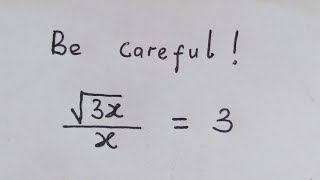 Be careful!
√3x / x = 3